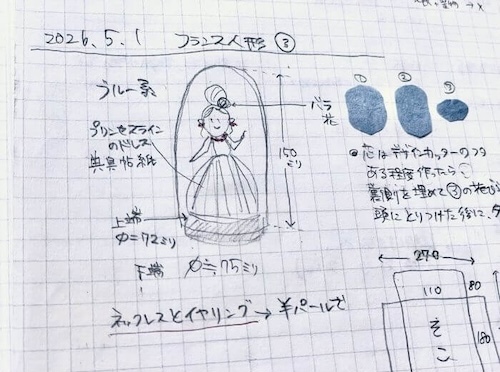 2026.5.1 フランス人形 ③
ブルー系
プリンセスライン
のドレス
呉具帖紙
バラ
花
150
ミリ
上端
φ=72ミリ
下端
φ≒75ミリ
ネックレスとイヤリング→半パールで
① ② ③
芯はデザインカッターの
ある程度作ったら
裏側を埋めて③の花が
頭にとりつけた後に、
270
110
80
そこ
180